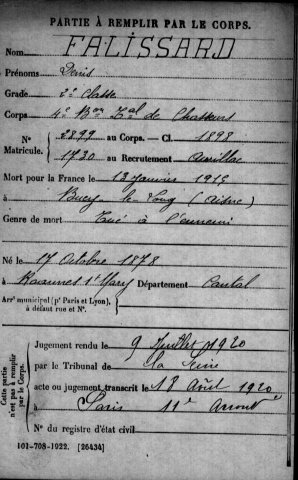 PARTIE À REMPLIR PAR LE CORPS.
Nom FALISSARD
Prénoms Denis
Grade 2e Classe
Corps 4e Bon Tal de Chasseurs
N° 2899 au Corps. — Cl. 1898
Matricule. 1730 au Recrutement Aurillac
Mort pour la France le 13 Janvier 1915
à Bucy-le-Long (Aisne)
Genre de mort Tué à l'ennemi
Né le 17 Octobre 1878
à Roannes St Mary Département Cantal
Arrt municipal (pr Paris et Lyon),
à défaut rue et N°.
Cette partie n'est pas à remplir par le Corps.
Jugement rendu le 9 Juillet 1920
par le Tribunal de la Seine
acte ou jugement transcrit le 18 Août 1920
à Paris 11e Arrondt
N° du registre d'état civil
101-708-1922. [26434]